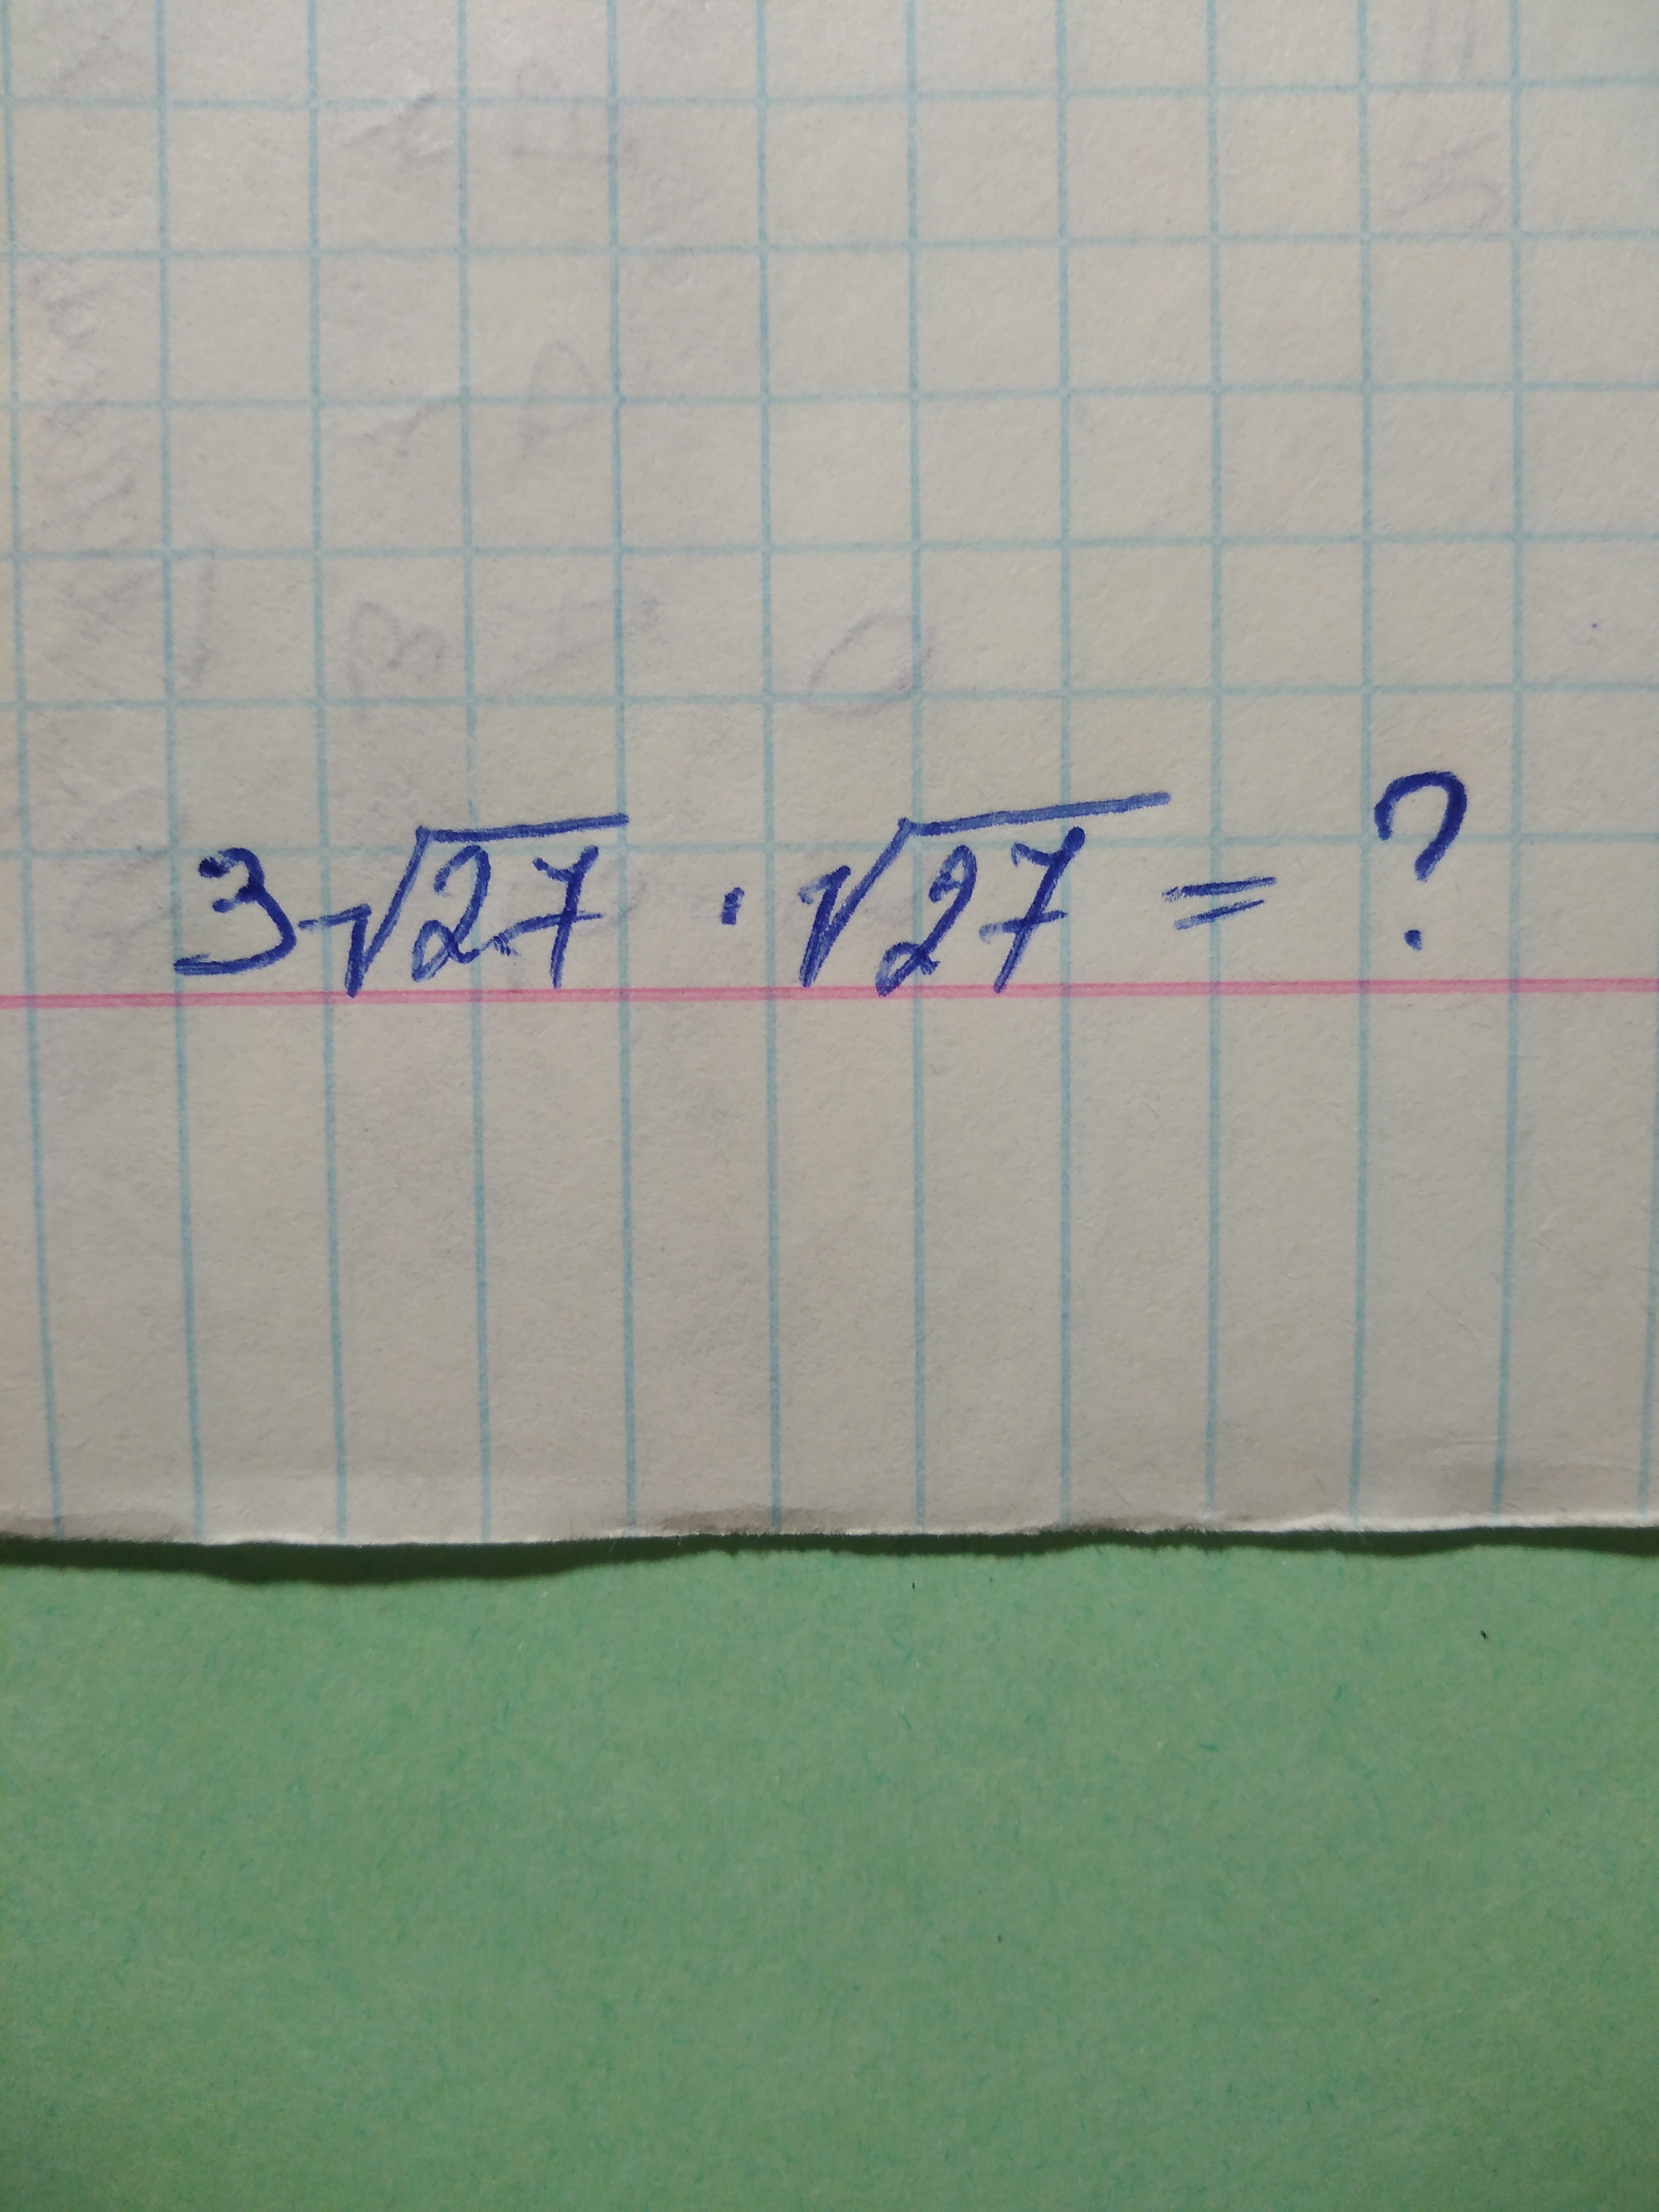 3√27 · √27 = ?